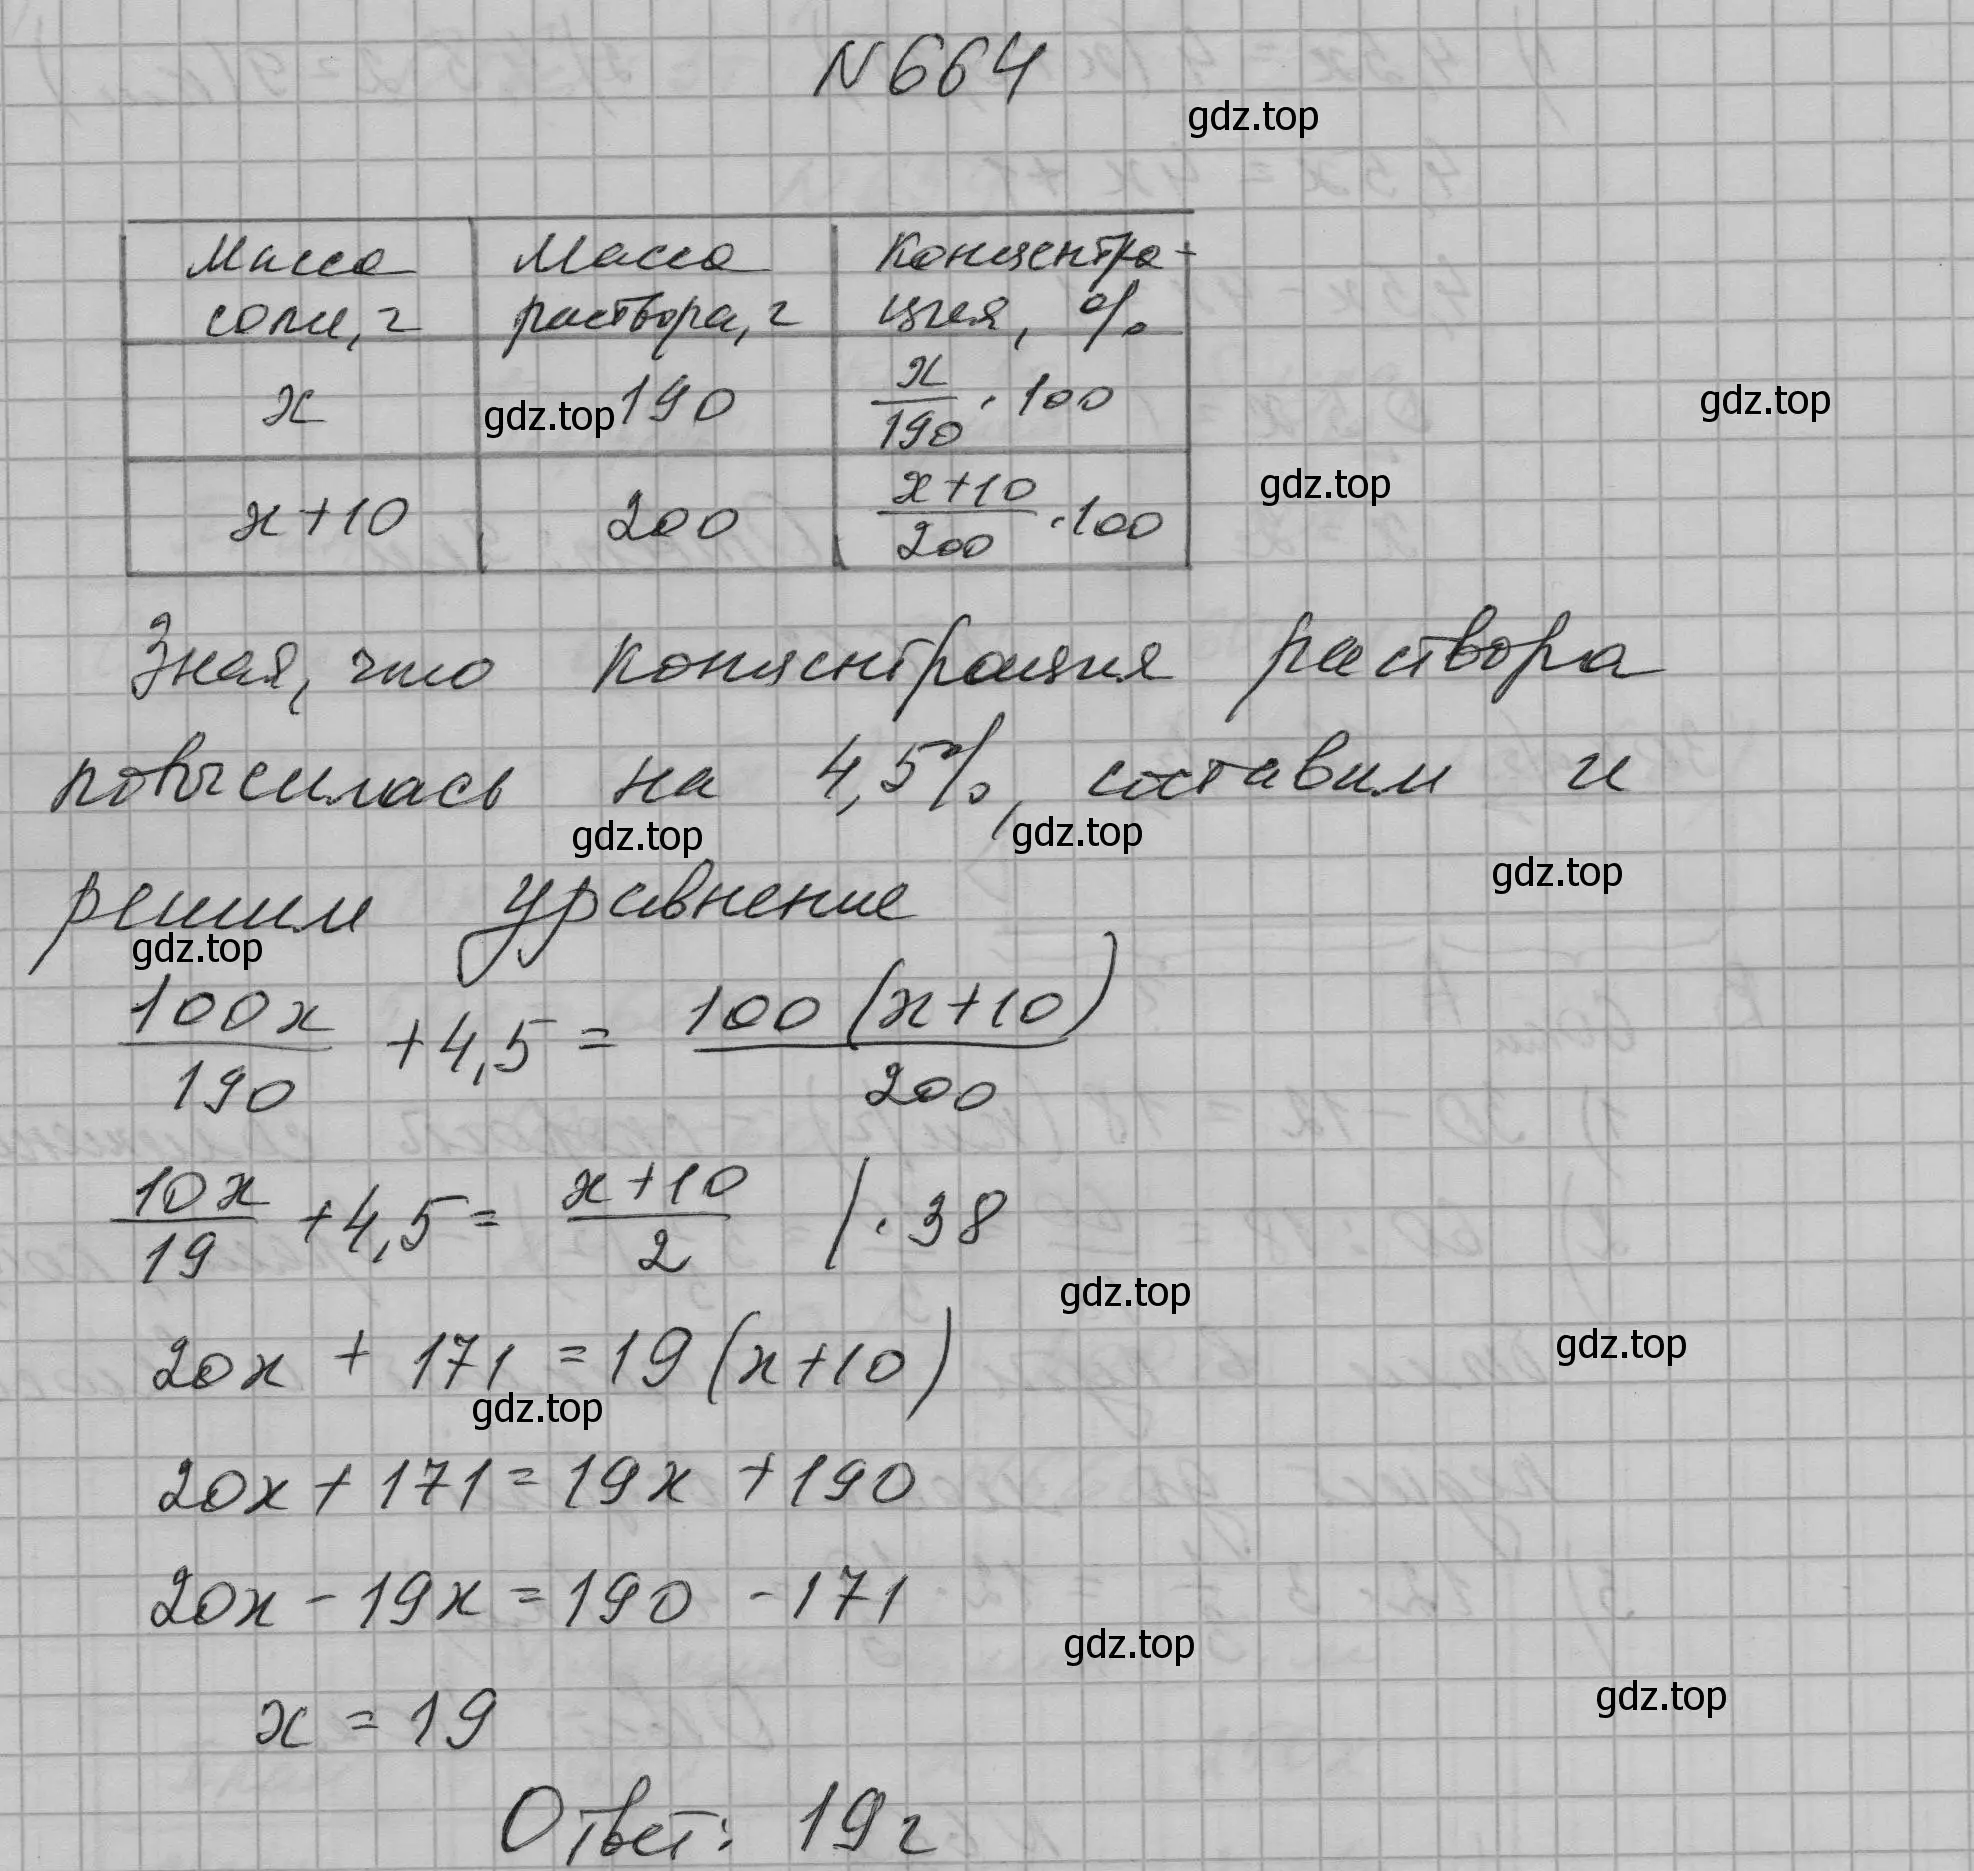 N 664
gdz.top
Масса соли, г | Масса раствора, г | Концентрация, %
x | gdz.top 190 | x/190 · 100
gdz.top
x+10 | 200 | (x+10)/200 · 100
gdz.top
Зная, что концентрация раствора
повысилась на 4,5%, составим и
gdz.top gdz.top
gdz.top
решим уравнение
gdz.top
100x/190 + 4,5 = 100(x+10)/200
10x/19 + 4,5 = (x+10)/2 | · 38
gdz.top
20x + 171 = 19(x+10)
gdz.top
gdz.top
20x + 171 = 19x + 190
20x - 19x = 190 - 171
gdz.top
x = 19
gdz.top
Ответ: 19 г